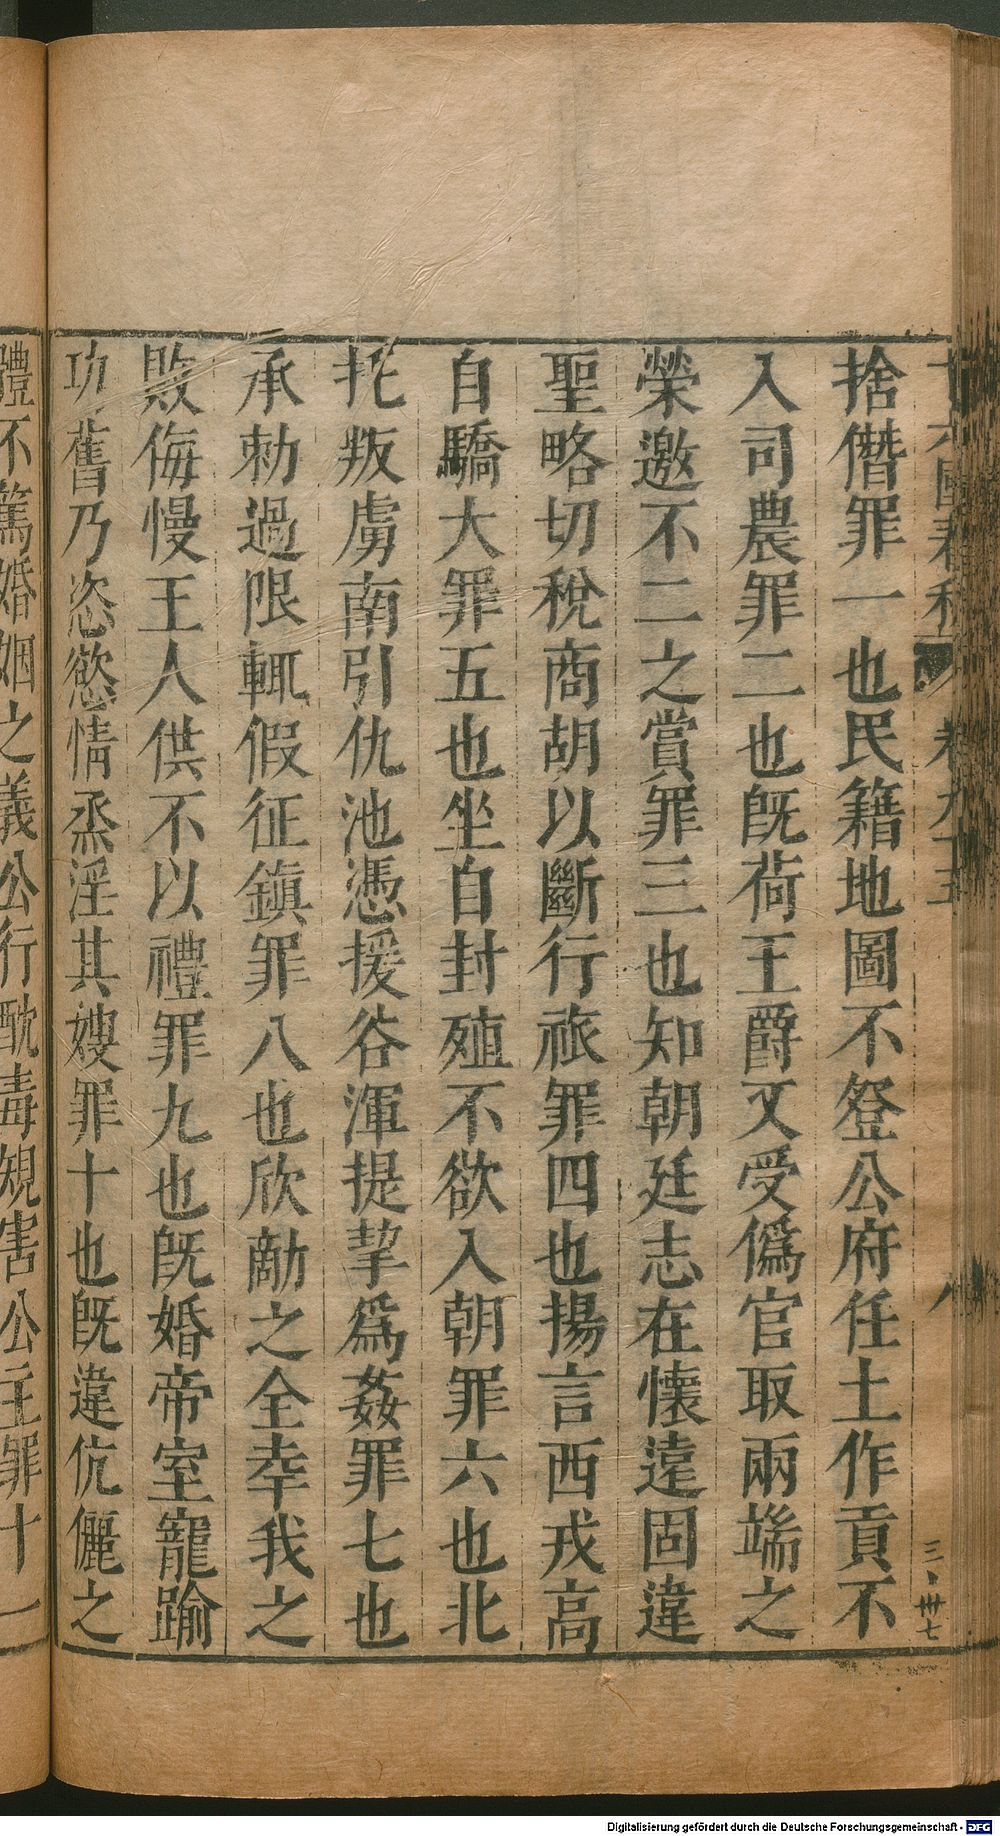 十六國春秋 卷九十五 八
捨僭罪一也民籍地圖不登公府任土作貢不
入司農罪二也旣荷王爵又受僞官取兩端之
榮邀不二之賞罪三也知朝廷志在懷遠固違
聖略切稅商胡以斷行旅罪四也揚言西戎高
自驕大罪五也坐自封殖不欲入朝罪六也北
扥叛虜南引仇池憑援谷渾提挈爲姦罪七也
承勅過限輒假征鎮罪八也欣敵之全幸我之
敗侮慢王人供不以禮罪九也旣婚帝室寵踰
功舊乃恣慾情烝淫其嫂罪十也旣違伉儷之
體不篤婚姻之義公行酖毒規害公主罪十一
三、卅七
Digitalisierung gefördert durch die Deutsche Forschungsgemeinschaft - DFG